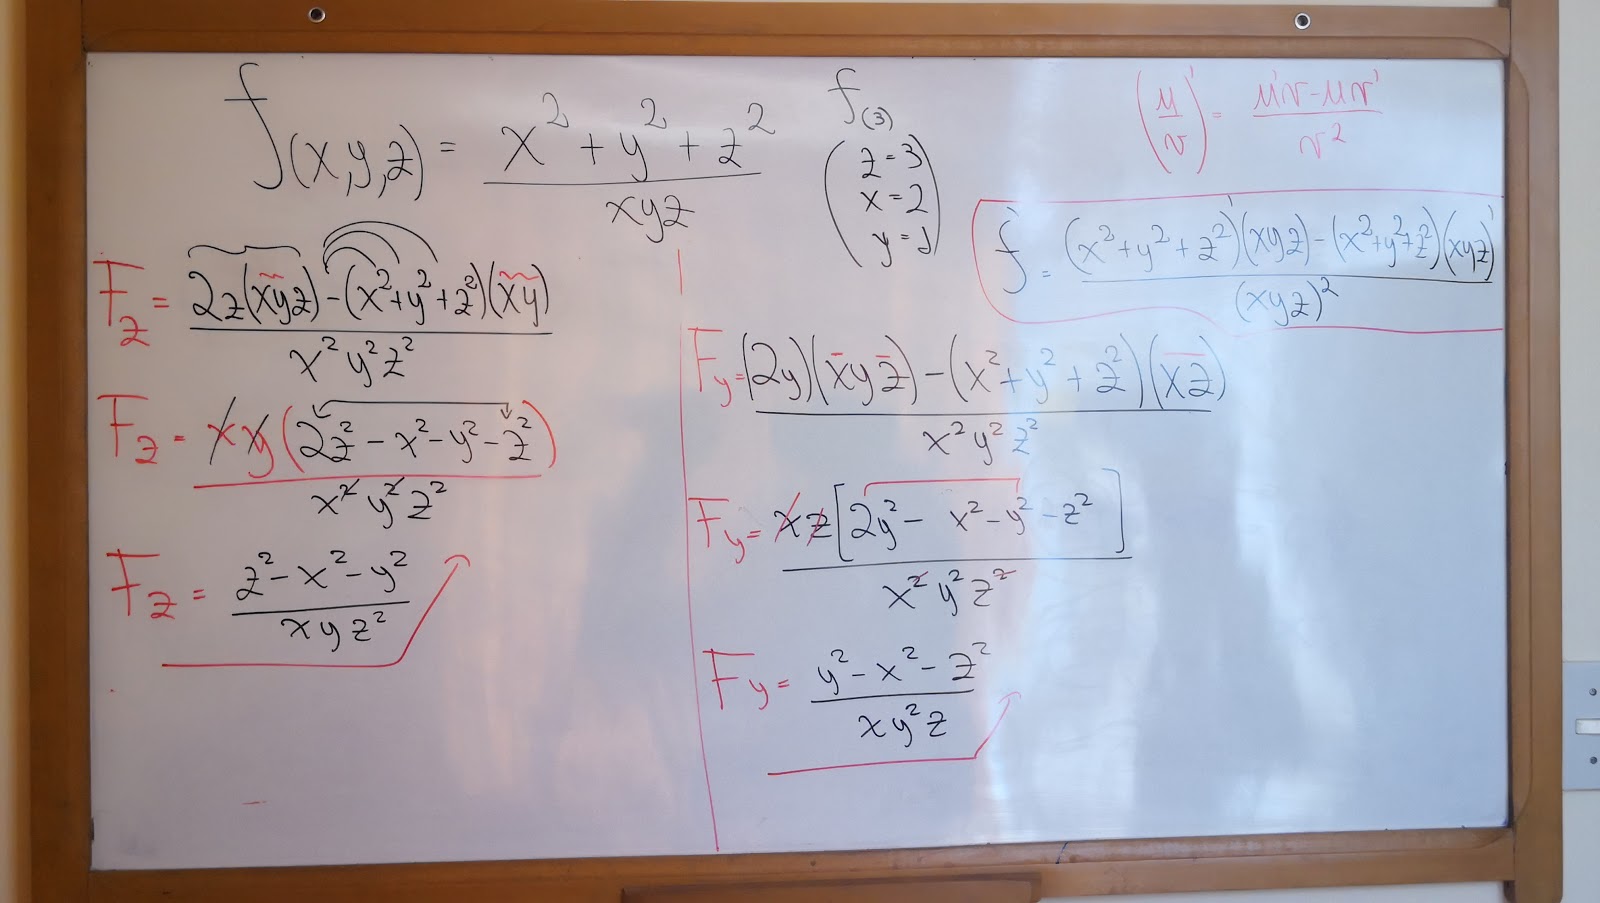 f(x,y,z) = (x² + y² + z²) / (xyz)
f(3)
(z = 3
x = 2
y = 1)
(u/v)' = (u'v - uv') / v²
f' = ((x² + y² + z²)'(xyz) - (x² + y² + z²)(xyz)') / (xyz)²
Fz = (2z(xyz) - (x² + y² + z²)(xy)) / (x² y² z²)
Fz = (xy(2z² - x² - y² - z²)) / (x² y² z²)
Fz = (z² - x² - y²) / (x y z²)
Fy = ((2y)(xyz) - (x² + y² + z²)(xz)) / (x² y² z²)
Fy = (xz[2y² - x² - y² - z²]) / (x² y² z²)
Fy = (y² - x² - z²) / (x y² z)